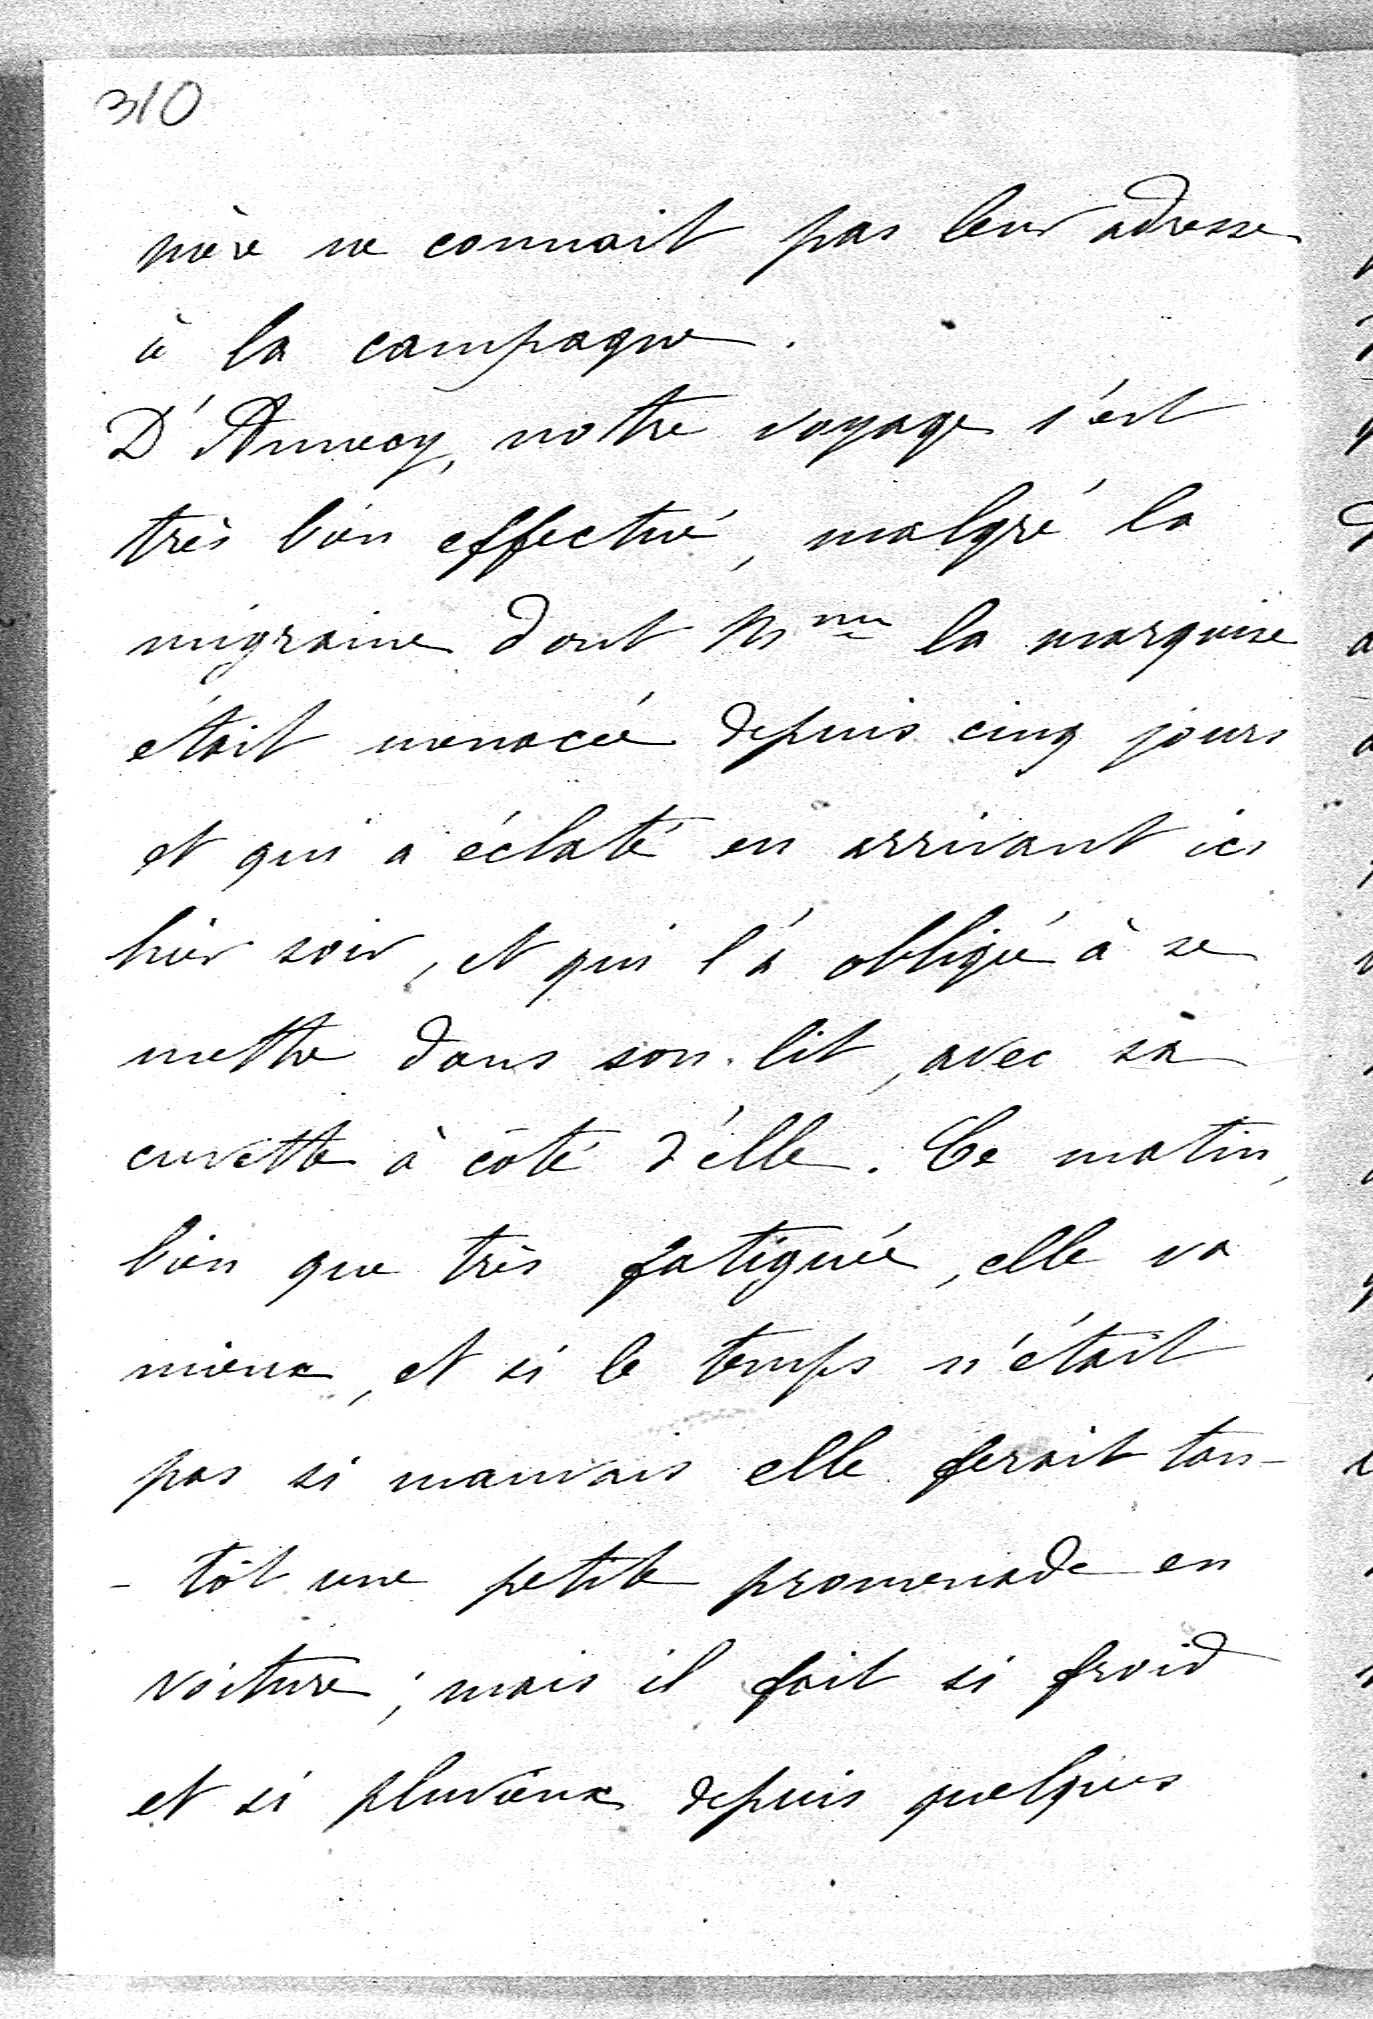 310
mère ne connait pas leur adresse
à la campagne.
D'Annecy, notre voyage s'est
très bien effectué, malgré la
migraine dont Mme la marquise
était menacée depuis cinq jours
et qui a éclaté en arrivant ici
hier soir, et qui l'a obligée à se
mettre dans son lit, avec sa
cuvette à côté d'elle. Ce matin,
bien que très fatiguée, elle va
mieux, et si le temps n'était
pas si mauvais elle ferait tan-
- tôt une petite promenade en
voiture; mais il fait si froid
et si pluvieux depuis quelques